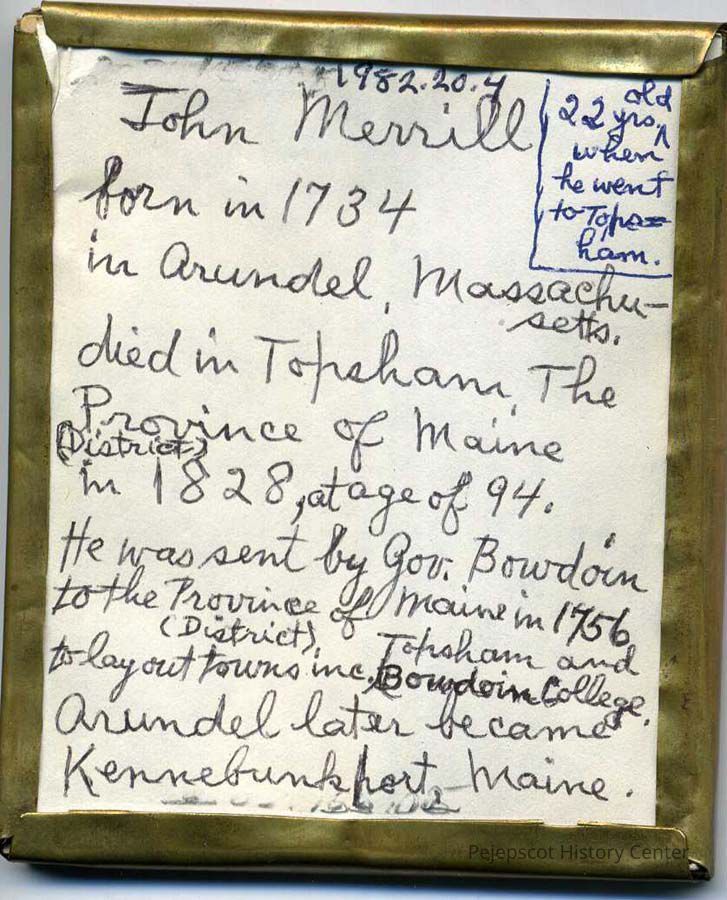 1982.20.4
John Merrill
born in 1734
in Arundel, Massachu-
setts.
old
22 yrs. ^
when
he went
to Tops=
ham.
died in Topsham, The
Province of Maine
(District)
in 1828, at age of 94.
He was sent by Gov. Bowdoin
to the Province of Maine in 1756
(District)
to lay out towns inc. Topsham and
Bowdoin College.
Arundel later became
Kennebunkport, Maine.
Pejepscot History Center